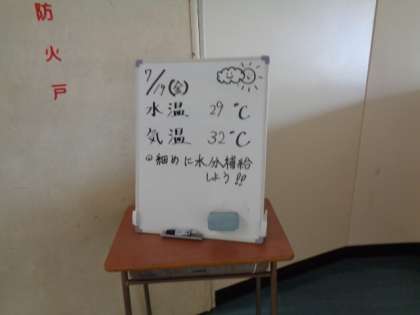 防火戸
7/19(金)
水温 29℃
気温 32℃
◎細めに水分補給
しよう!!